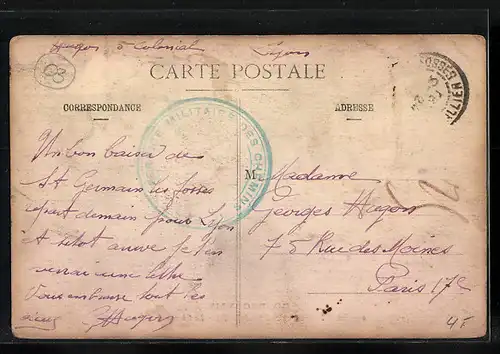 Hugon 5e Colonial Lyon
CARTE POSTALE
CORRESPONDANCE
ADRESSE
MILITAIRE DES CHEMINS
Un bon baiser de
St Germain les Fosses
départ demain pour Lyon
et sitot arrivé je t'en
verrai une lettre
Vous embrasse tout les
deux Hugon
M Madame
Georges Hugon
75 Rue des Moines
Paris 17e
4-